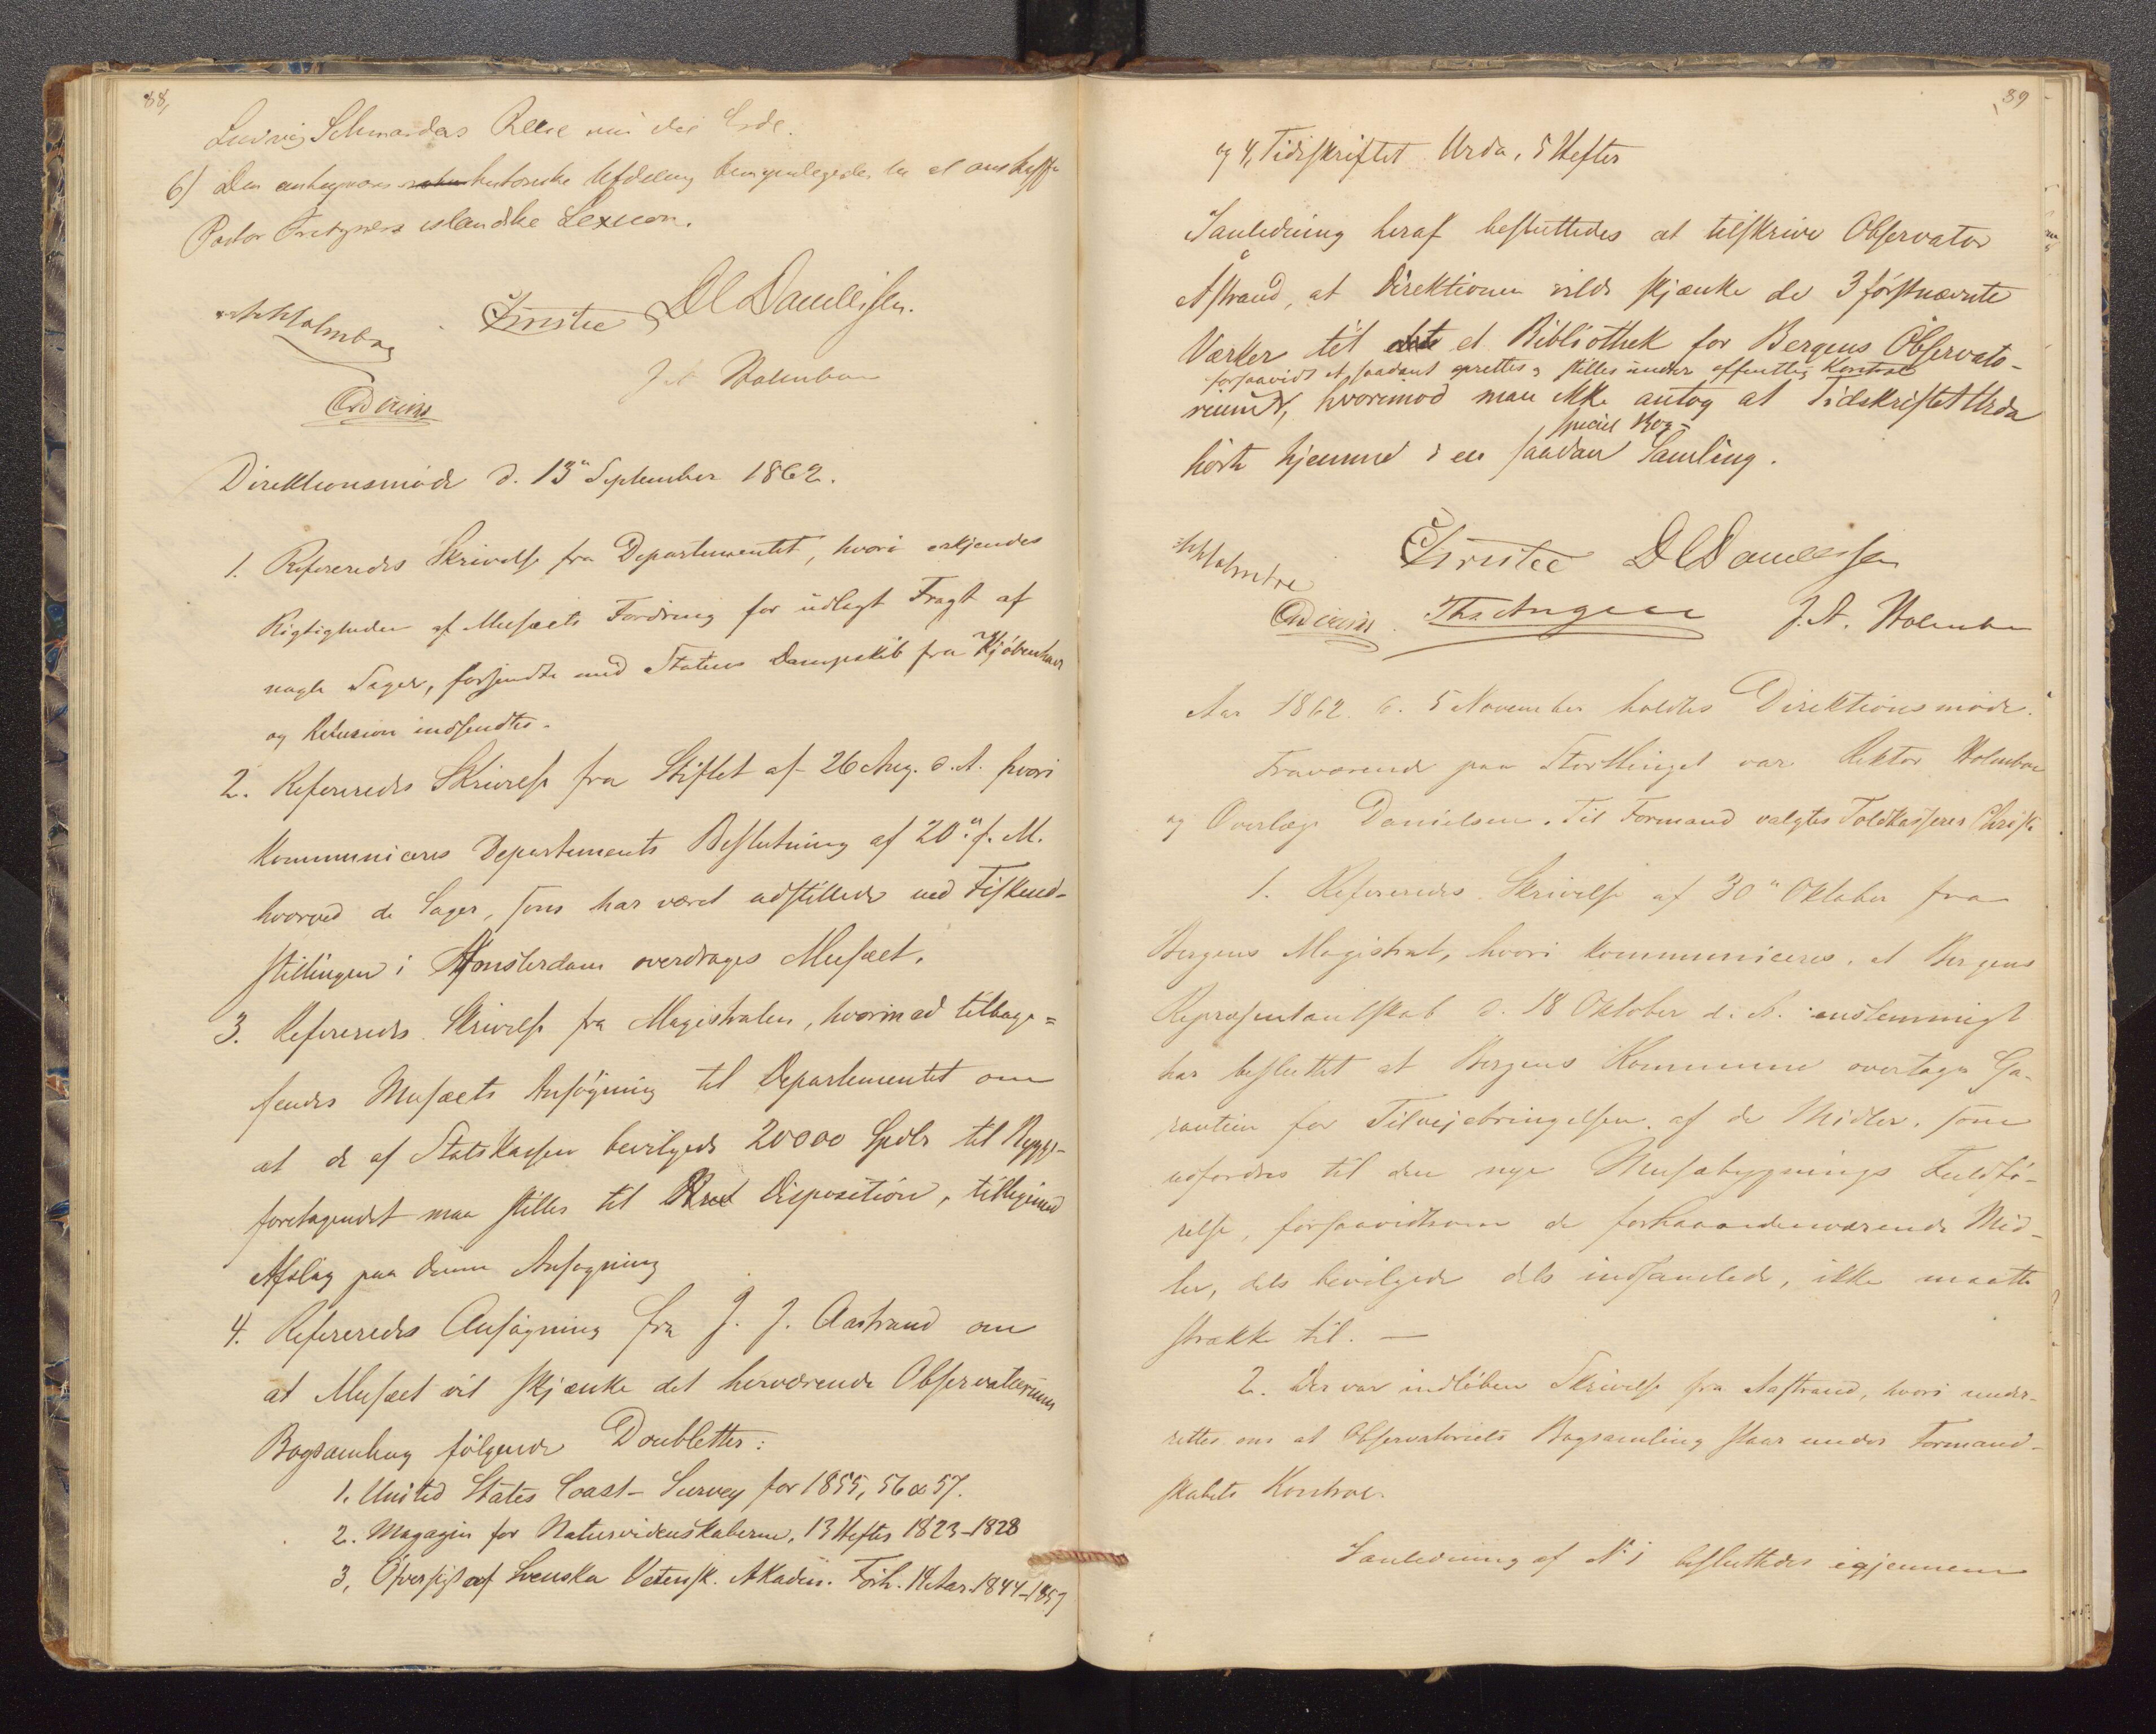 88,
Ludvig Schmardas Reise um die Erde.
6) Den antiqvarisk historiske Afdeling bemyndigedes til at anskaffe
Pastor Fritzners islandske Lexicon.
Christie DCDanielssen.
J. A. Holmboe
Direktionsmøde d. 13de September 1862.
1. Refereredes Skrivelse fra Departementet, hvori erkjendes
Rigtigheden af Musæets Fordring for udlagt Fragt af
nogle Sager, forsendte med Statens Dampskib fra Kjøbenhavn
og Refusion indsendtes.
2. Refereredes Skrivelse fra Stiftet af 26 Aug. d. A. hvori
kommuniceres Departements Beslutning af 20de f. M.
hvorved de Sager, som har været udstillede ved Fiskeud-
stillingen i Amsterdam overdrages Musæet.
3. Refereredes Skrivelse fra Magistraten, hvormed tilbage=
sendes Musæets Ansøgning til Departementet om
at de af Statskassen bevilgede 20000 Spdlr til Bygge-
foretagendet maa stilles til Disposition, tilligemed
Afslag paa denne Ansøgning
4. Refereredes Ansøgning fra J. J. Aastrand om
at Musæet vil skjænke det herværende Observatoriums
Bogsamling følgende Doubletter:
1. United States Coast-Survey for 1855, 56 & 57.
2. Magazin for Naturvidenskaberne, 13 Hefter 1823-1828
3, Öfversigt af Svenska Vetensk. Akadem. Förh. 14 Aar. 1844-1857
89
og 4, Tidsskriftet Urda, 5 Hefter
I anledning heraf besluttedes at tilskrive Observator
Åstrand, at Direktionen vilde skjænke de 3 førstnævnte
Værker til et Bibliothek for Bergens Observato-
forsaavidt et saadant oprettes og stilles under offentlig Kontrol
rium, hvorimod man ikke antog at Tidskriftet Urda
speciel Bog-
hørte hjemme i en saadan Samling.
Christie DCDanielssen
J. A. Holmboe
Aar 1862 d. 5 November holdtes Direktionsmøde.
Fraværende paa Storthinget var Rektor Holmboe
og Overlæge Danielsen. Til Formand valgtes Toldkasserer Christie
1. Refereredes Skrivelse af 30de Oktober fra
Bergens Magistrat, hvori kommuniceres, at Bergens
Repræsentantskab d. 18 Oktober d. A. enstemmigt
har besluttet at Bergens Kommune overtager Ga-
rantien for Tilveiebringelsen af de Midler, som
udfordres til den nye Musæbygnings Fuldfø-
relse, forsaavidtsom de forhaandenværende Mid-
ler, dels bevilgede dels indsamlede, ikke maatte
strække til. —
2. Der var indløben Skrivelse fra Aastrand, hvori under-
rettes om at Observatoriets Bogsamling staar under Formand-
skabets Kontrol.
I anledning af N. 1 besluttedes igjennem